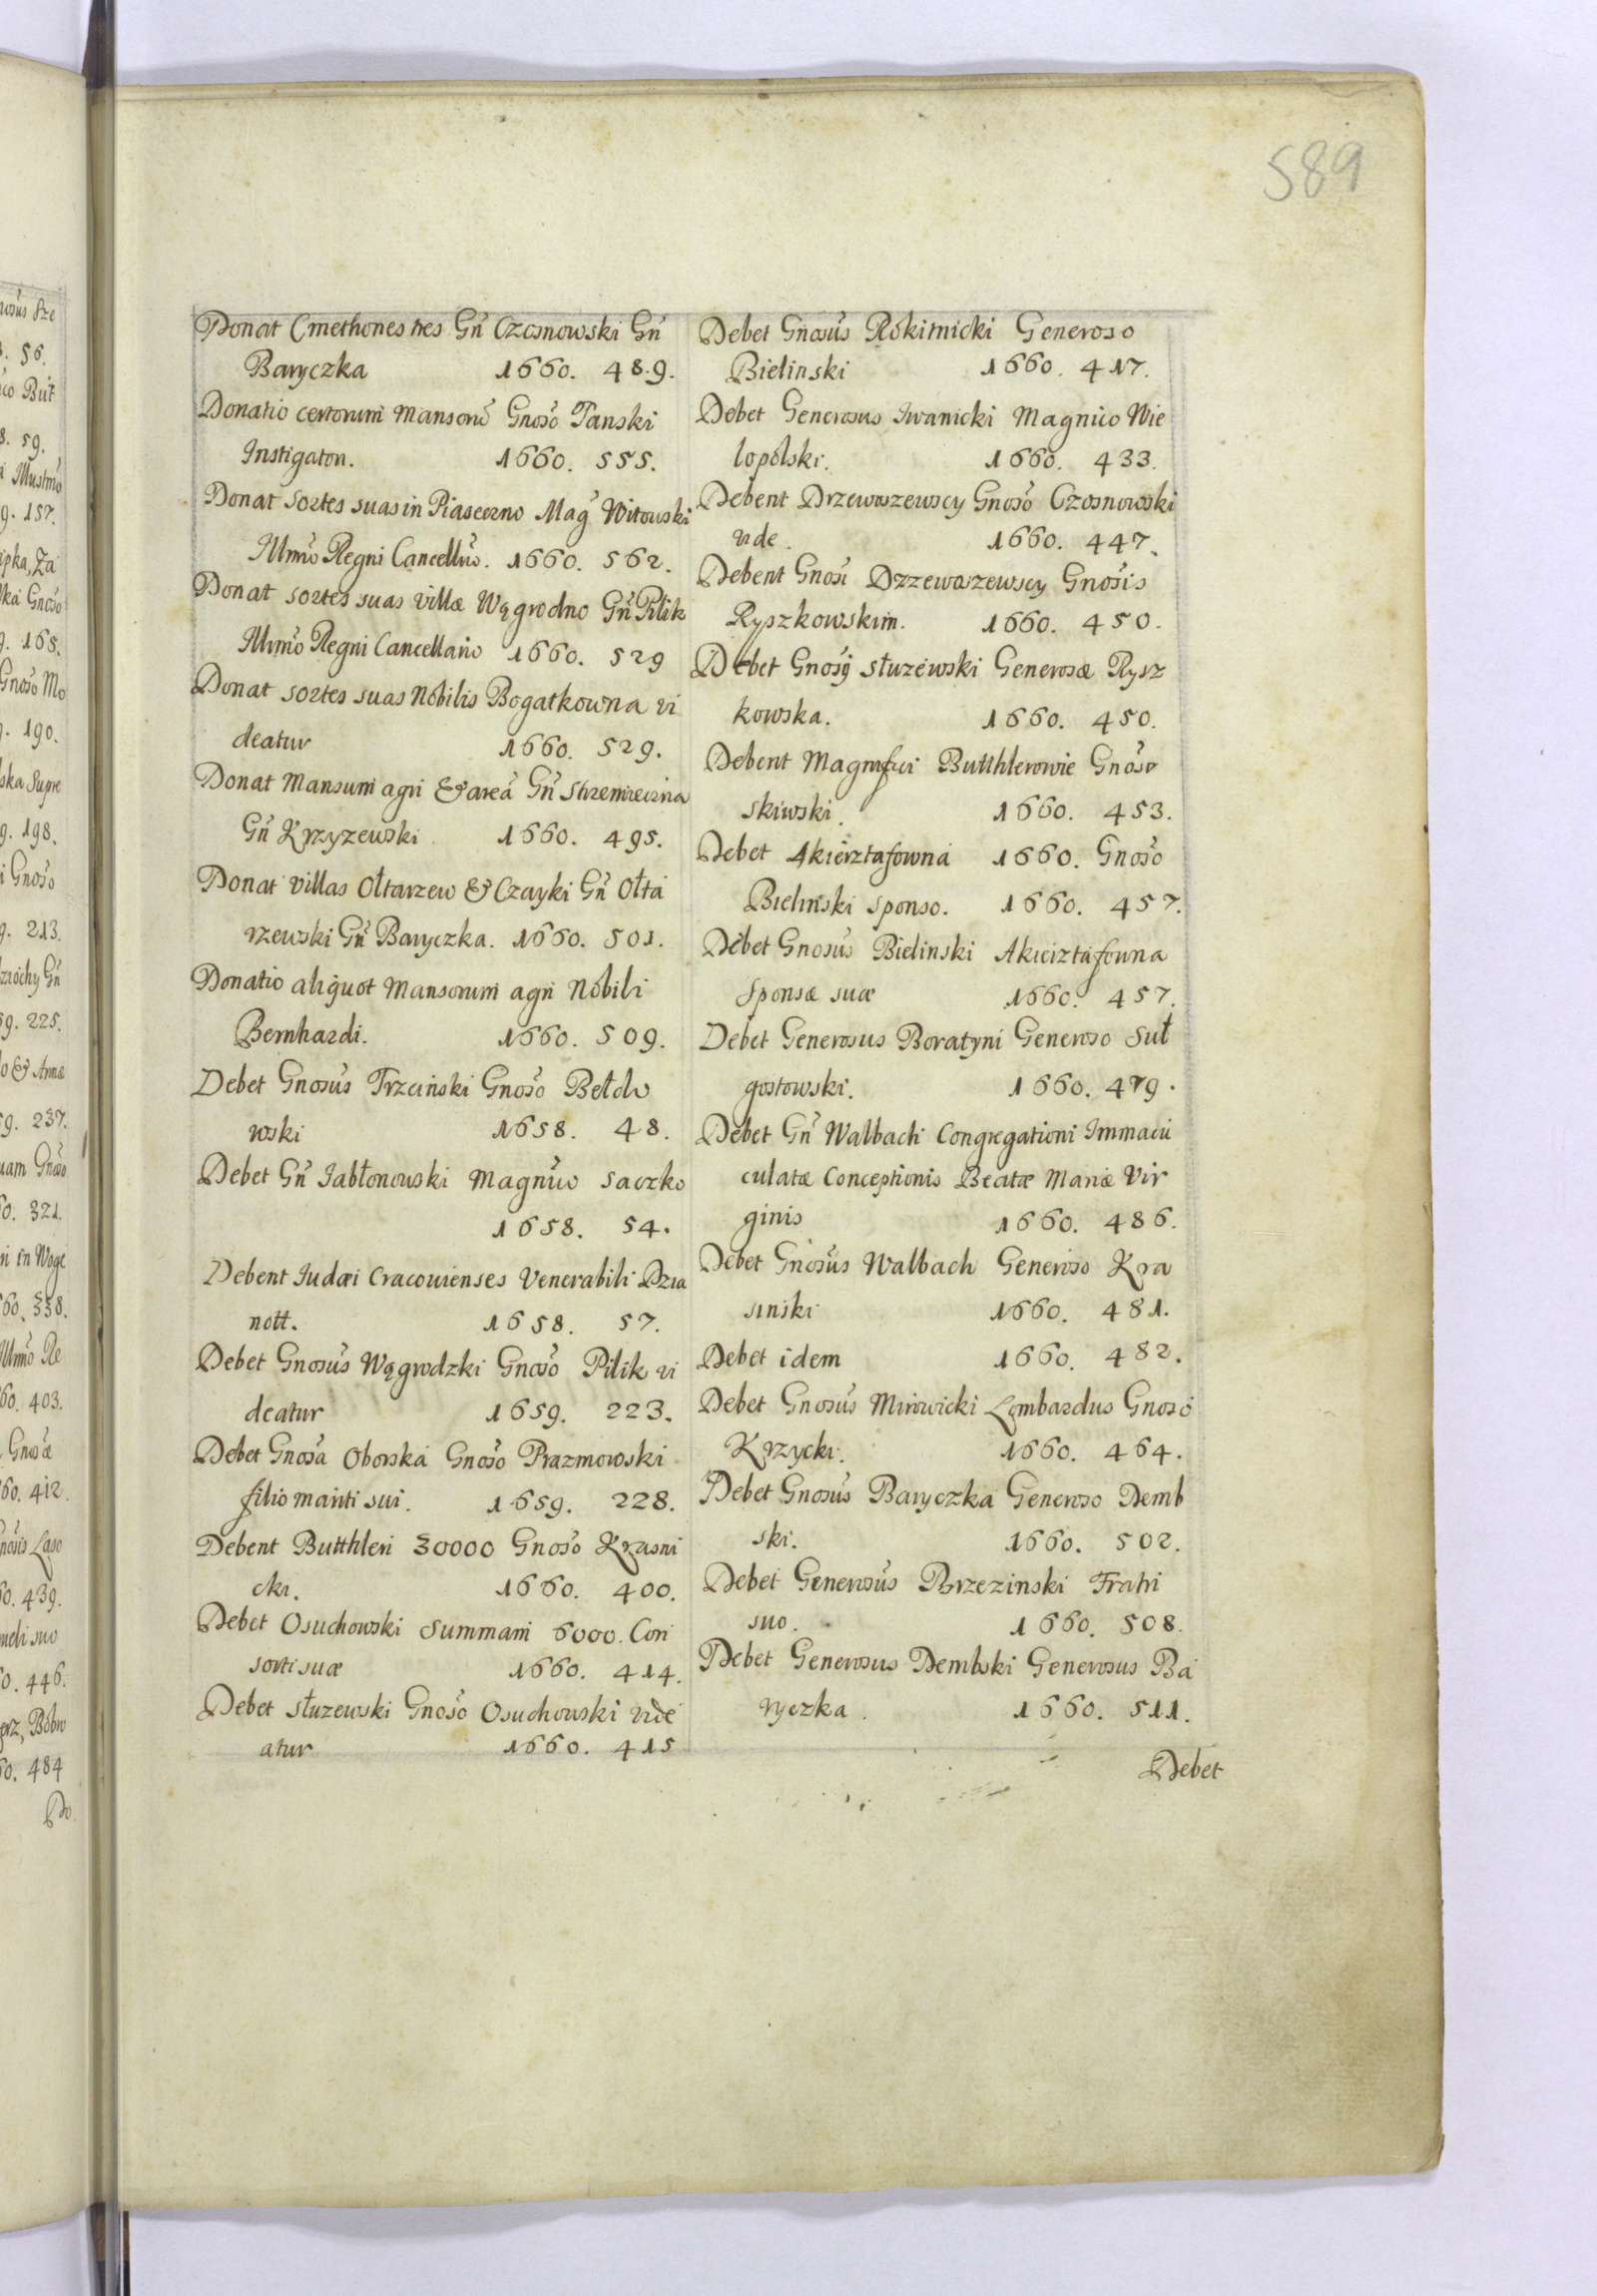 589
Donat Cmethones tres Gn̄ Czosnowski Gn̄
Baryczka 1660. 489.
Donatio certorum Mansorū Gnoso Tanski
Instigatori. 1660. 555.
Donat Sortes suas in Piaseczno Mag Witowski
Illmo Regni Cancellrio. 1660. 562.
Donat sortes suas villæ Wągrodno Gn̄ Pilik
Illmo Regni Cancellario 1660. 529
Donat sortes suas Nobilis Bogatkowna vi
deatur 1660. 529.
Donat Mansum agri & areā Gn̄ Strzemieczna
Gn̄ Krzyzewski 1660. 495.
Donat villas Ołtarzew & Czayki Gn̄ Ołta
rzewski Gn̄ Baryczka. 1660. 501.
Donatio aliquot Mansorum agri Nobili
Bernhardi. 1660. 509.
Debet Gnosus Trzciński Gnoso Bełdo
wski 1658. 48.
Debet Gn̄ Jabłonowski Magnico Saczko
1658. 54.
Debent Judæi Cracouienses Venerabili Dzia
nott. 1658. 57.
Debet Gnosus Wągrodzki Gnoso Pilik vi
deatur 1659. 223.
Debet Gnosa Oborska Gnoso Prazmowski
filio mariti sui. 1659. 228.
Debent Butthleri 30000 Gnoso Krasni
cki. 1660. 400.
Debet Osuchowski Summam 6000. Con
sorti suæ 1660. 414.
Debet Słuzewski Gnoso Osuchowski vide
atur 1660. 415
Debet Gnosus Rokitnicki Generoso
Bielinski 1660. 417.
Debet Generosus Iwanicki Magnico Wie
lopolski. 1660. 433.
Debent Drzewoszewscy Gnoso Czosnowski
vide. 1660. 447.
Debent Gnosi Drzewoszewscy Gnosis
Ryszkowskim. 1660. 450.
Debet Gnosy Słuzewski Generosæ Rysz
kowska. 1660. 450.
Debent Magnifici Butthlerowie Gnoso
Skiwski. 1660. 453.
Debet Akierztafowna 1660. Gnoso
Bielinski Sponso. 1660. 457.
Debet Gnosus Bielinski Akierztafowna
Sponsæ suæ 1660. 457.
Debet Generosus Boratyni Generoso Suł
gostowski. 1660. 479.
Debet Gn̄ Walbach Congregationi Immacu
culatæ Conceptionis Beatæ Mariæ Vir
ginis 1660. 486.
Debet Gnosus Walbach Generoso Kra
sinski 1660. 481.
Debet idem 1660. 482.
Debet Gnosus Mirowicki Lombardus Gnoso
Krzycki. 1660. 464.
Debet Gnosus Baryczka Generoso Demb
ski. 1660. 502.
Debet Generosus Brzezinski Fratri
suo. 1660. 508.
Debet Generosus Dembski Generosus Ba
ryczka. 1660. 511.
Debet